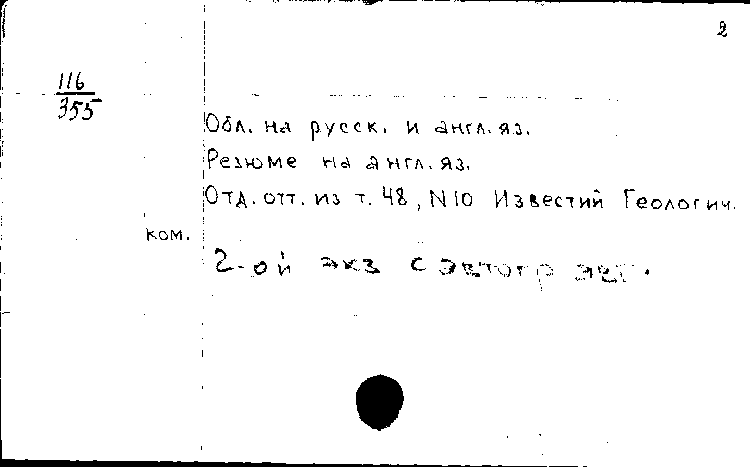 2
116
355
Обл. на русск. и англ. яз.
Резюме на англ. яз.
Отд. отт. из т. 48, N10 Известий Геологич.
ком.
2-ой экз с автогр авт.